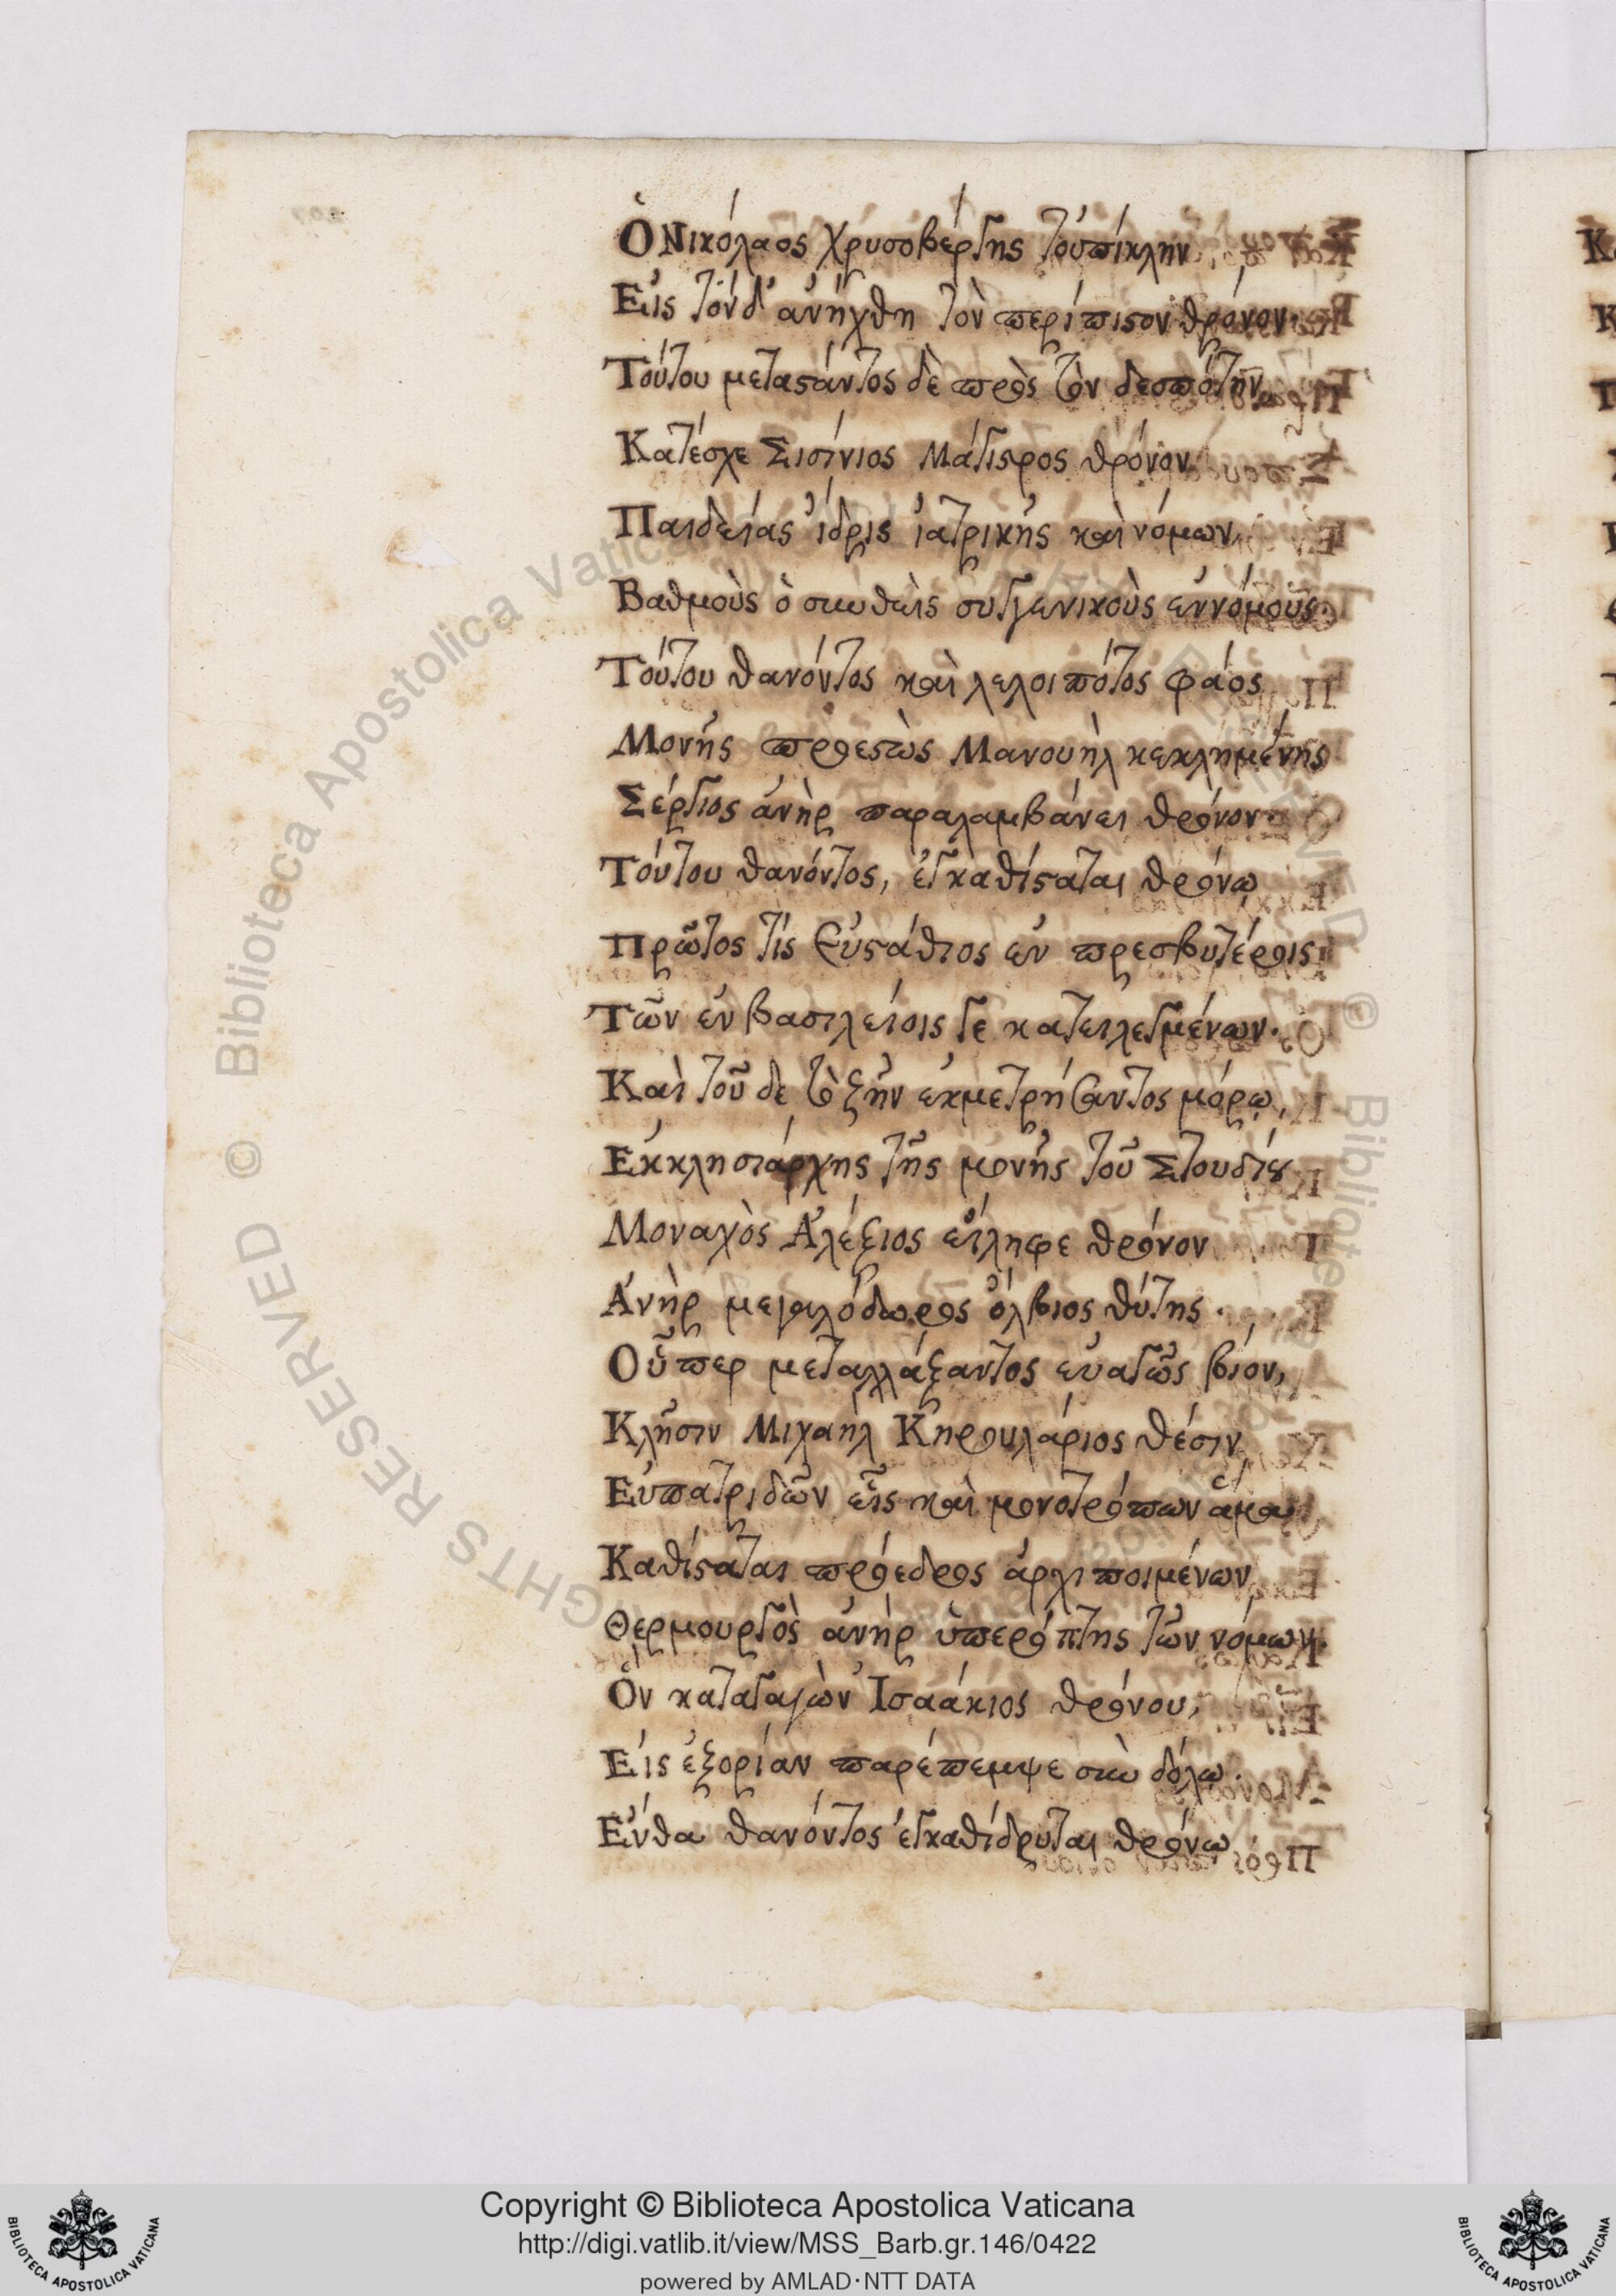 Ὁ Νικόλαος χρυσοβέργης τοὐπίκλην
Εἰς τόνδ' ἀνήχθη τὸν περίπιστον θρόνον.
Τούτου μεταστάντος δὲ πρὸς τὸν δεσπότην,
Κατέσχε Σισίνιος Μάγιστρος θρόνον
Παιδείας ἴδρις ἰατρικῆς καὶ νόμων,
Βαθμοὺς ὁ συνθεὶς συγγενικοὺς ἐννόμους.
Τούτου θανόντος καὶ λελοιπότος φάος
Μονῆς προεστὼς Μανουὴλ κεκλημένης
Σέργιος ἀνὴρ παραλαμβάνει θρόνον.
Τούτου θανόντος, ἐγκαθίσταται θρόνῳ
Πρῶτος τίς Εὐστάθιος ἐν πρεσβυτέροις
Τῶν ἐν βασιλείοις γε κατειλεγμένων.
Καὶ τοῦ δε τὸ ζῆν ἐκμετρήσαντος μόρῳ,
Ἐκκλησιάρχης τῆς μονῆς τοῦ Στουδίου
Μοναχὸς Ἀλέξιος εἴληφε θρόνον
Ἀνὴρ μεγαλόδωρος ὄλβιος θύτης.
Οὗπερ μεταλλάξαντος εὐαγῶς βίον,
Κλῆσιν Μιχαὴλ Κηρουλάριος θέσιν
Εὐπατριδῶν εἷς καὶ μονοτρόπων ἅμα
Καθίσταται πρόεδρος ἀρχιποιμένων
Θερμουργὸς ἀνὴρ ὑπερόπτης τῶν νόμων.
Ὃν καταγαγὼν Ἰσαάκιος θρόνου,
Εἰς ἐξορίαν παρέπεμψε σὺν δόλῳ.
Ἔνθα θανόντος ἐγκαθίδρυται θρόνῳ
© Biblioteca Apostolica Vaticana
RIGHTS RESERVED
Copyright © Biblioteca Apostolica Vaticana
http://digi.vatlib.it/view/MSS_Barb.gr.146/0422
powered by AMLAD·NTT DATA
BIBLIOTECA APOSTOLICA VATICANA
BIBLIOTECA APOSTOLICA VATICANA